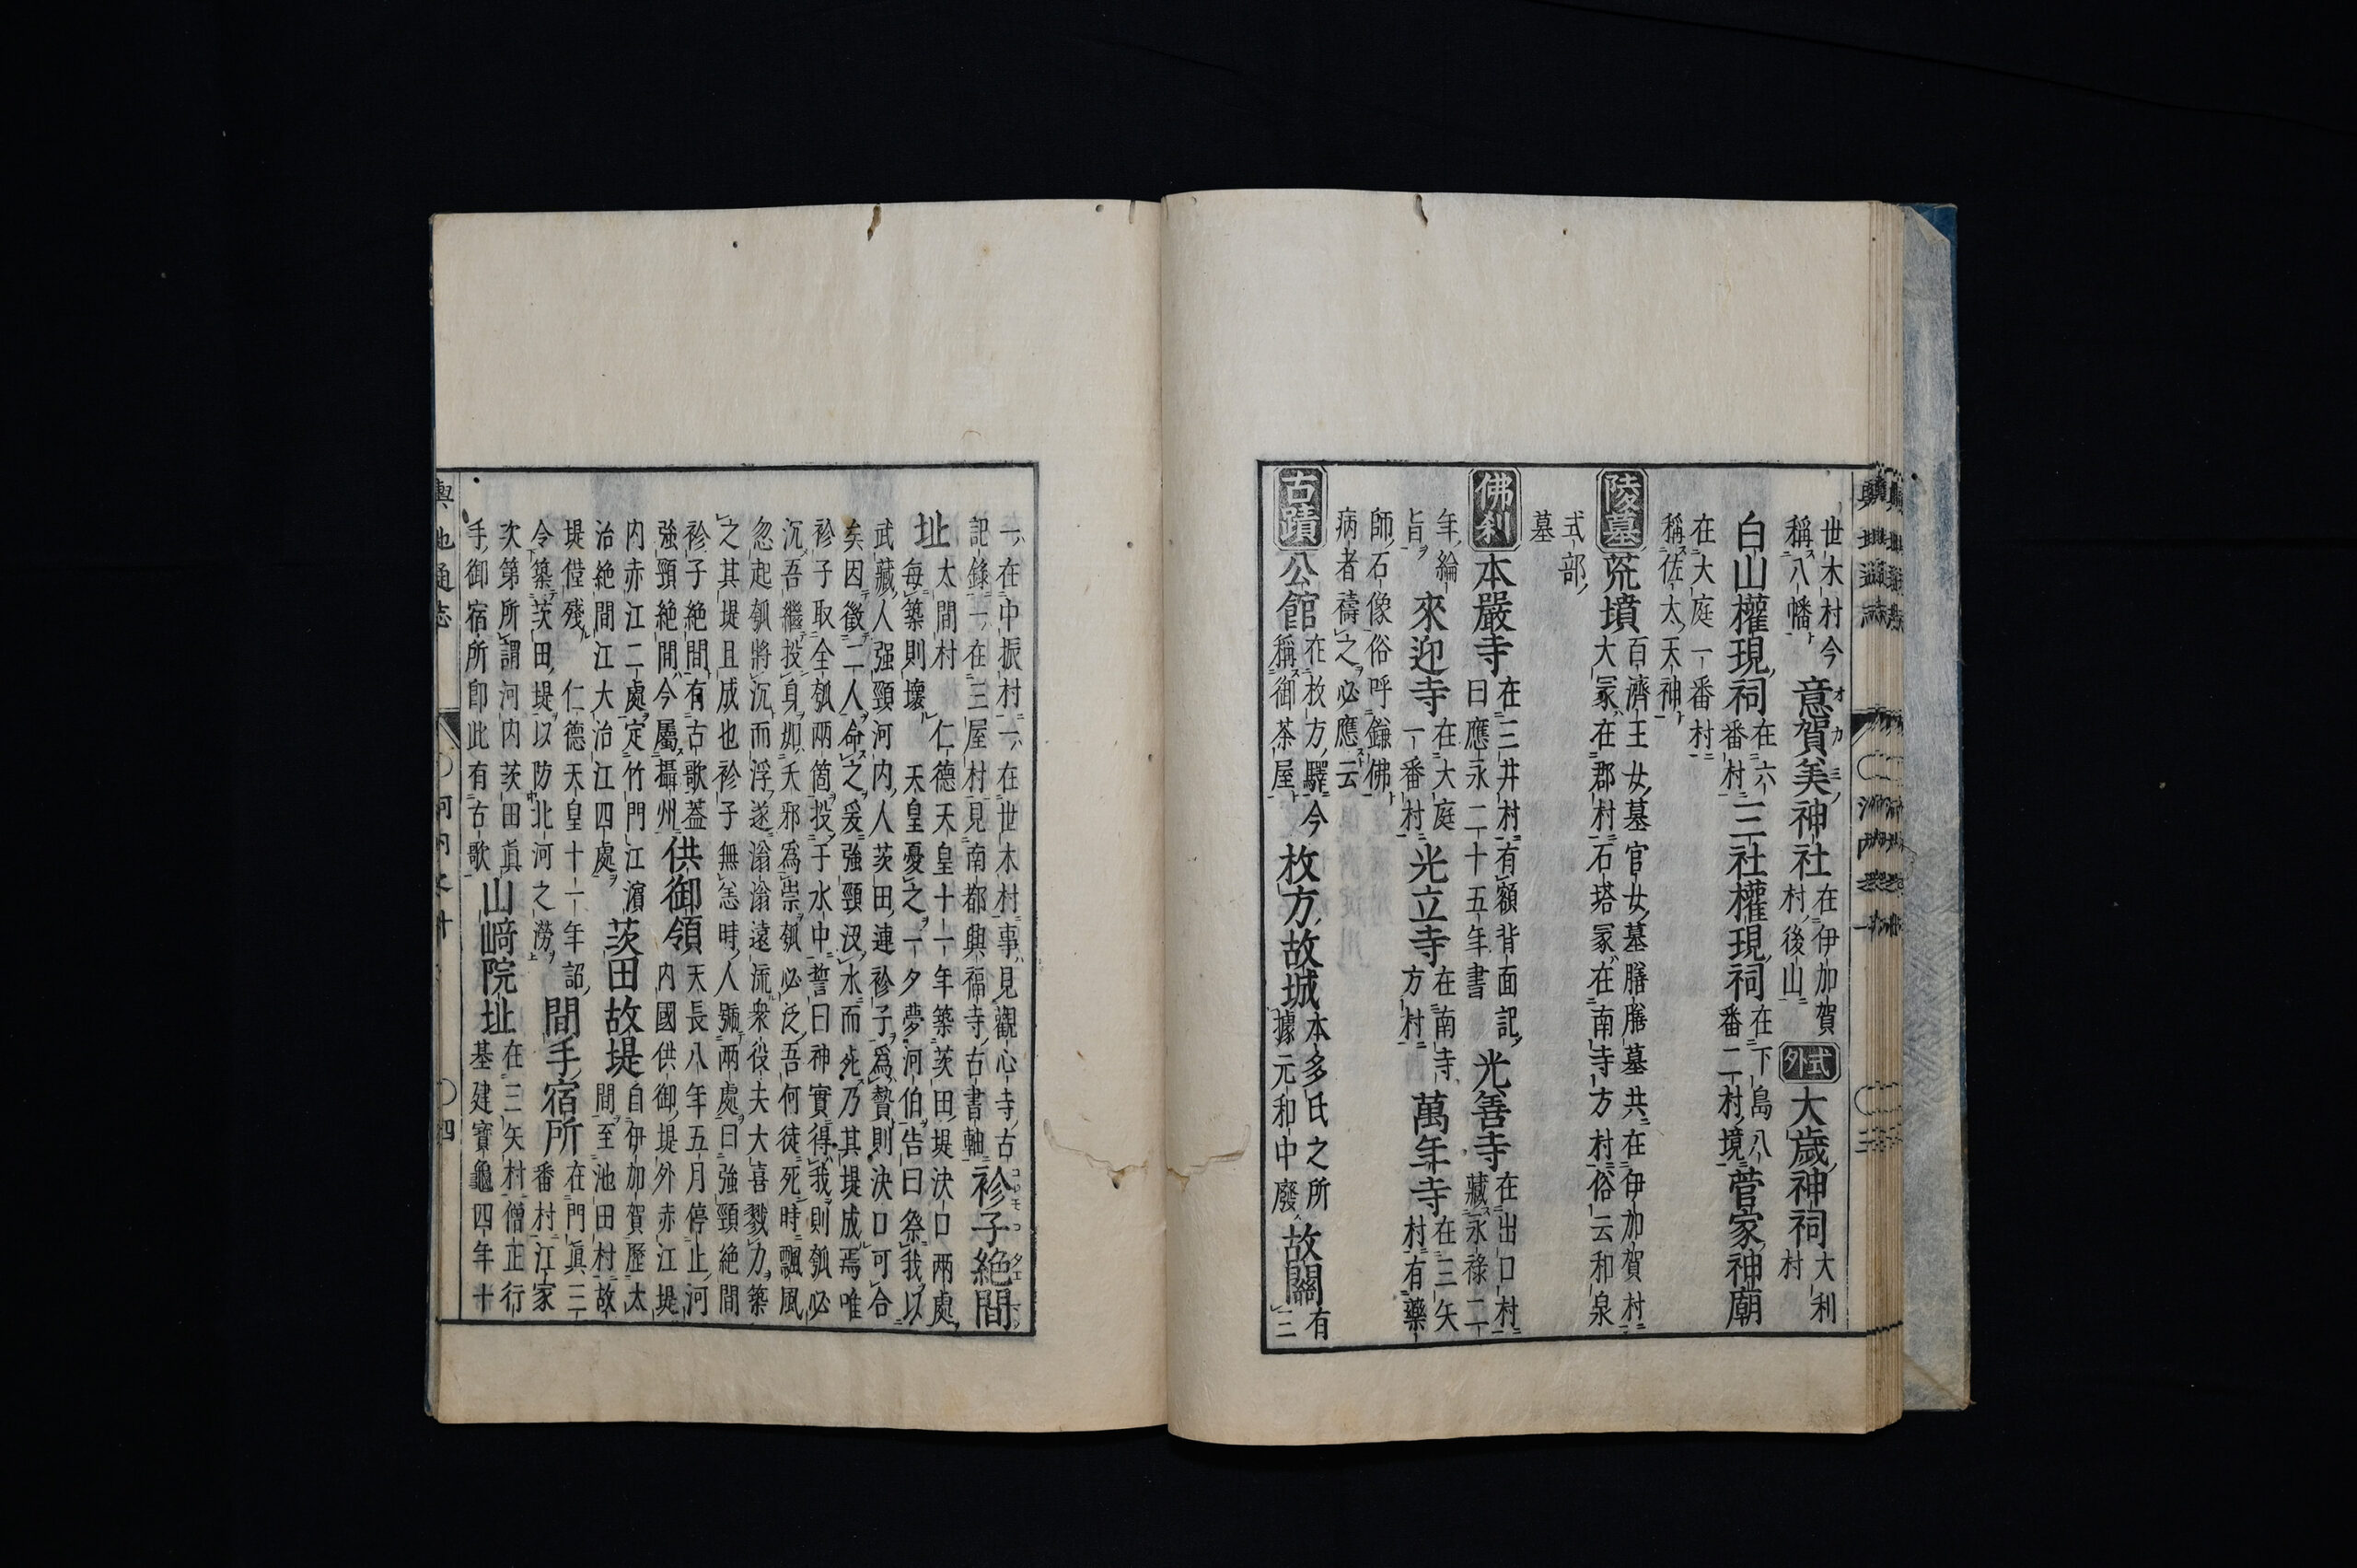 世木村今
稱八幡
意賀美神社
オカミノ
在伊加賀
村後山
式外
大歲神祠
大利
村
白山權現祠
在六
番村
三社權現祠
在下島八
番二村境
菅家神廟
在大庭一番村
稱佐太天神
陵墓
荒墳
百濟王女墓官女墓膳膳墓共在伊加賀村
大冢在郡村石塔冢在南寺方村俗云和泉
式部
墓
佛刹
本嚴寺
在三井村有額背面記
曰應永二十五年書
光善寺
在出口村
藏永祿二
年綸
旨
來迎寺
在大庭
一番村
光立寺
在南寺
方村
萬年寺
在三矢
村有藥
師石像俗呼鎌佛
病者禱之必應云
古蹟
公館
在枚方驛今
稱御茶屋
枚方故城
本多氏之所
據元和中廢
故關
有
三
一在中振村一在世木村事見觀心寺古
記錄一在三屋村見南都興福寺古書軸
袗子絕間
址
太間村 仁德天皇十一年築茨田堤決口兩處
每築則壞 天皇憂之一夕夢河伯告曰祭我以
武藏人强頸河内人茨田連袗子爲贄則決口可合
矣因徵二人命之爰強頸沒水而死乃其堤成焉唯
袗子取全瓠兩箇投于水中誓曰神實得我則瓠必
沉吾繼投身如夭邪爲崇瓠必泛吾何徒死時飄風
忽起瓠將沉而浮遂滃滃遠流衆役夫大喜戮力築
之其堤且成也袗子無恙時人號兩處曰強頸絕間
袗子絕間有古歌蓋
強頸絕間今屬攝州
供御領
天長八年五月停止河
内國供御堤外赤江堤
内赤江二處定竹門江濱
治絕間江大治江四處
茨田故堤
自伊加賀歷太
間至池田村故
堤僅殘 仁德天皇十一年詔
令築茨田堤以防北河之澇
間手宿所
在門眞三
番村江家
次第所謂河内茨田眞
手御宿所卽此有古歌
山﨑院址
在三矢村僧正行
基建寶龜四年十
輿地通志
四